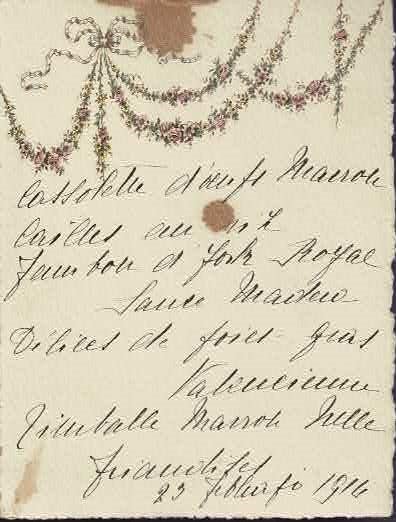 Cassolette d'oeufs Marron
Cailles au riz
Jambon d'York Royal
Sauce Madere
Délices de foies-gras
Valencienne
Timballe Marron Nelle
Friandises
23 1916